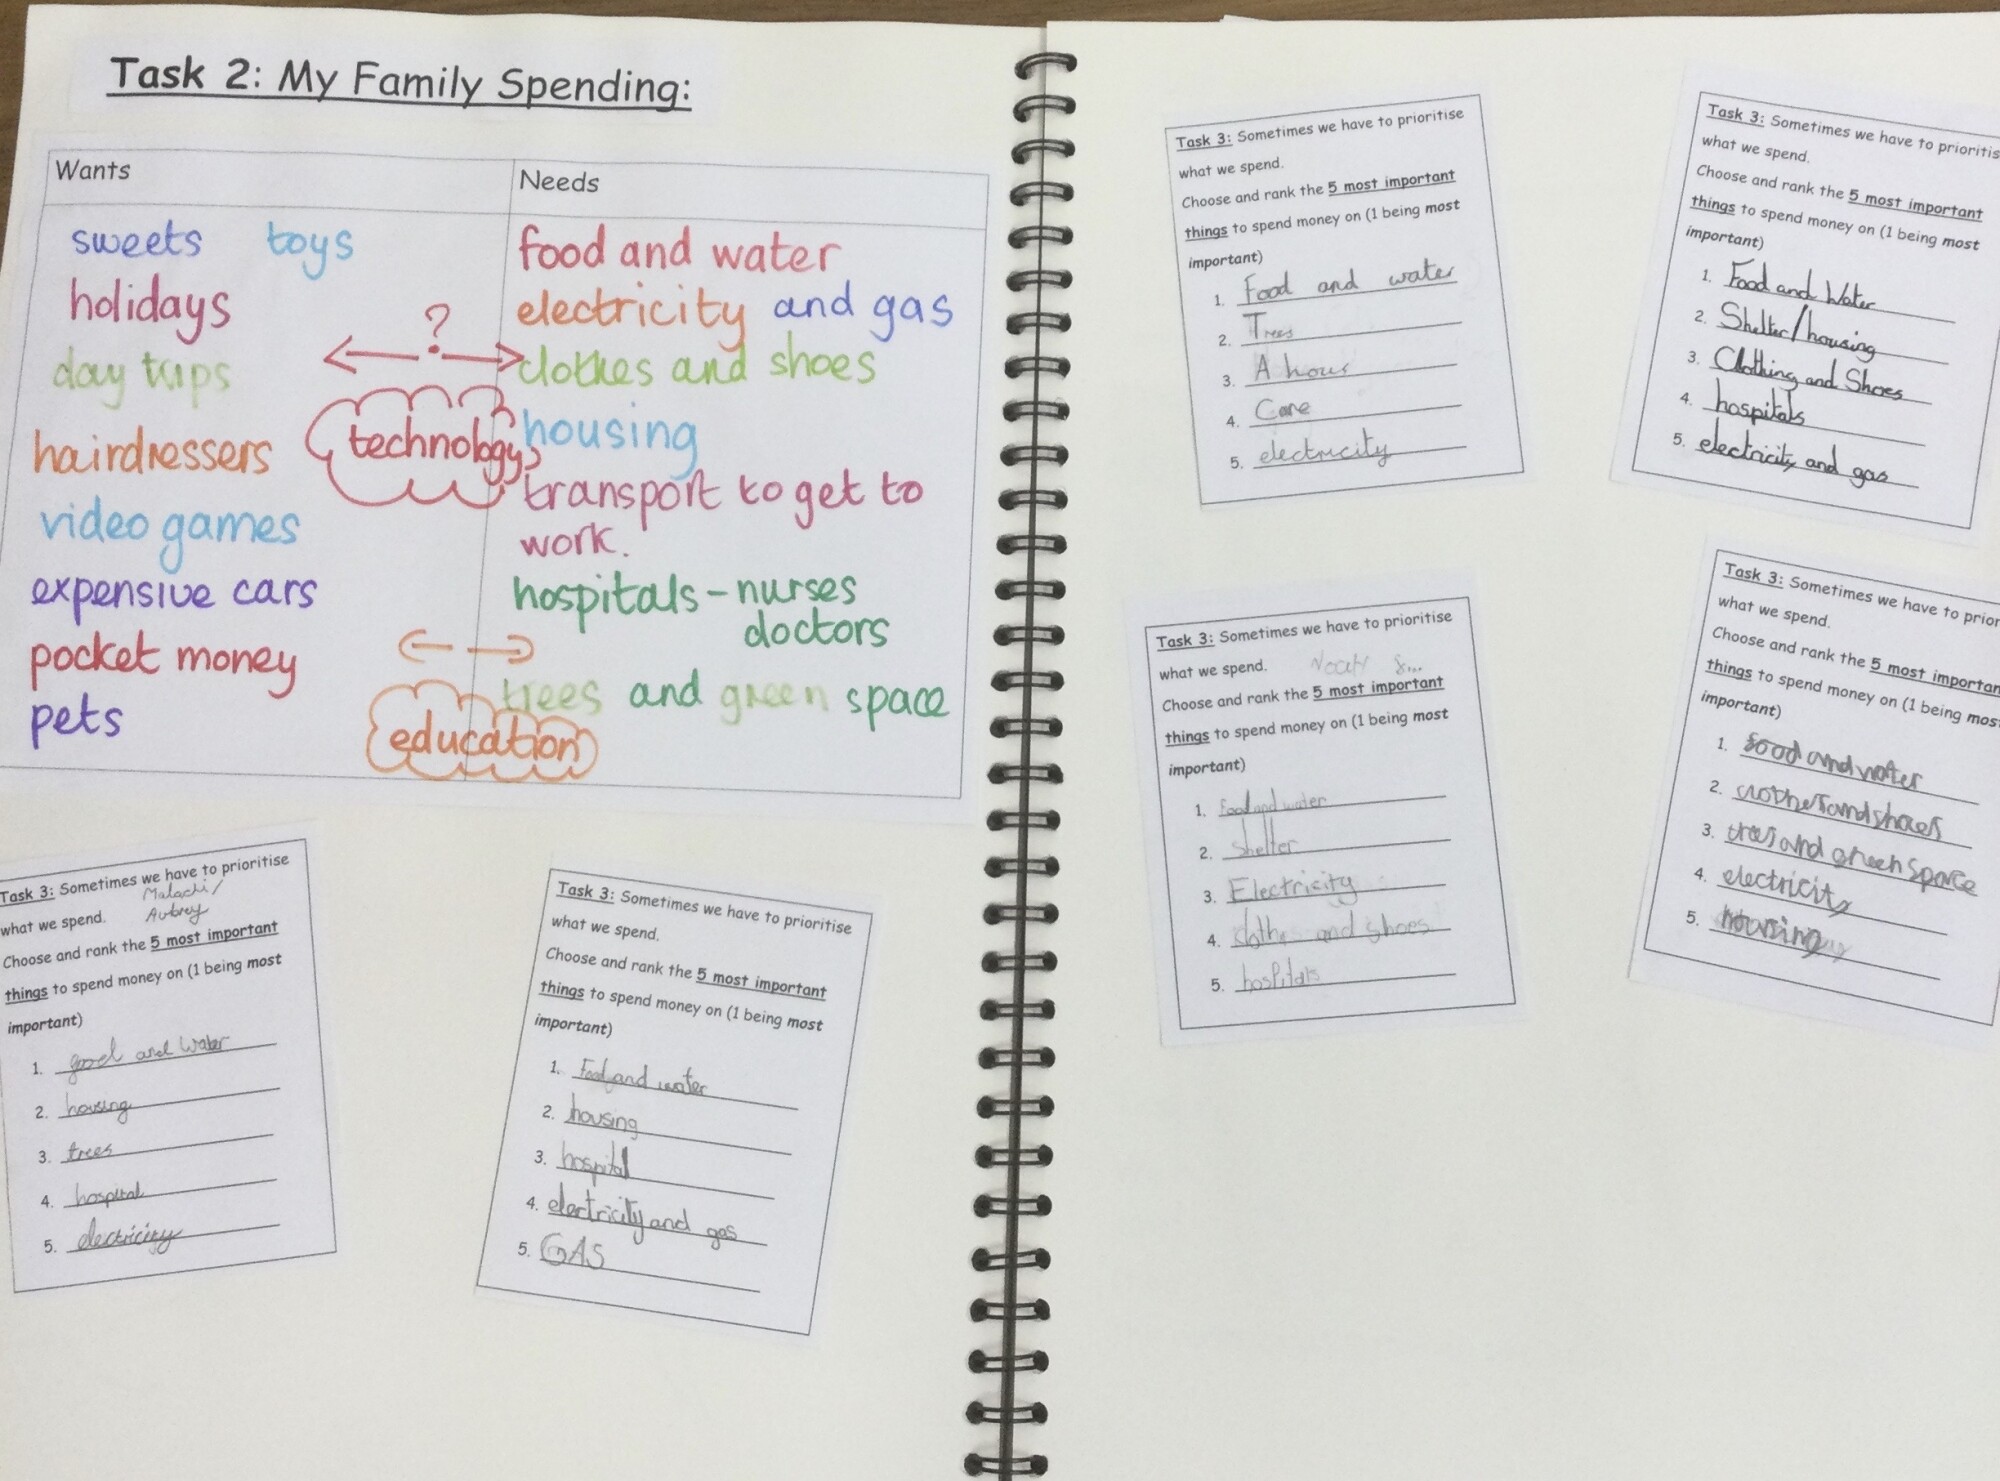 Task 2: My Family Spending:
Wants
sweets toys
holidays
day trips
hairdressers
video games
expensive cars
pocket money
pets
?
technology
education
Needs
food and water
electricity and gas
clothes and shoes
housing
transport to get to
work.
hospitals - nurses
doctors
trees and green space
Task 3: Sometimes we have to prioritise
Malachi/
what we spend.
Aubrey
Choose and rank the 5 most important
things to spend money on (1 being most
important)
1. good and water
2. housing
3. trees
4. hospital
5. electricity
Task 3: Sometimes we have to prioritise
what we spend.
Choose and rank the 5 most important
things to spend money on (1 being most
important)
1. Food and water
2. housing
3. hospital
4. electricity and gas
5. GAS
Task 3: Sometimes we have to prioritise
what we spend.
Choose and rank the 5 most important
things to spend money on (1 being most
important)
1. Food and water
2. Trees
3. A hous
4. Care
5. electricity
Task 3: Sometimes we have to prioritis
what we spend.
Choose and rank the 5 most important
things to spend money on (1 being most
important)
1. Food and Water
2. Shelter/housing
3. Clothing and Shoes
4. hospitals
5. electricity and gas
Task 3: Sometimes we have to prioritise
what we spend.
Choose and rank the 5 most important
things to spend money on (1 being most
important)
1. food and water
2. Shelter
3. Electricity
4. clothes and shoes
5. hospitals
Task 3: Sometimes we have to prior
what we spend.
Choose and rank the 5 most importan
things to spend money on (1 being mos
important)
1. food and water
2. and shoes
3. trees and green space
4. electricity
5. housing